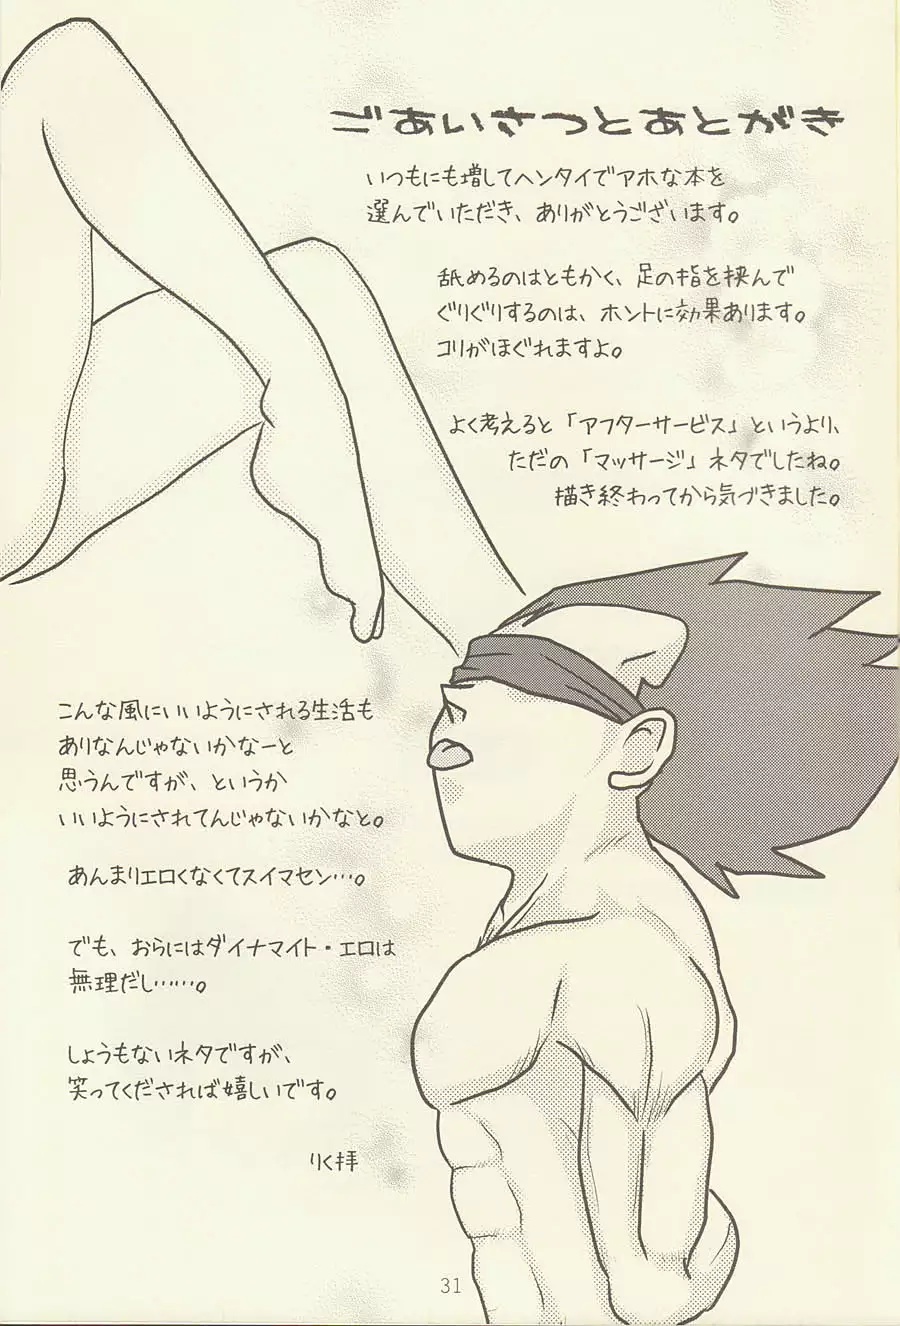 ごあいさつとあとがき
いつもにも増してヘンタイでアホな本を
選んでいただき、ありがとうございます。
舐めるのはともかく、足の指を挟んで
ぐりぐりするのは、ホントに効果あります。
コリがほぐれますよ。
よく考えると「アフターサービス」というより、
ただの「マッサージ」ネタでしたね。
描き終わってから気づきました。
こんな風にいいようにされる生活も
ありなんじゃないかなーと
思うんですが、というか
いいようにされてんじゃないかなと。
あんまりエロくなくてスイマセン…。
でも、おらにはダイナマイト・エロは
無理だし……。
しょうもないネタですが、
笑ってくだされば嬉しいです。
りく拝
31